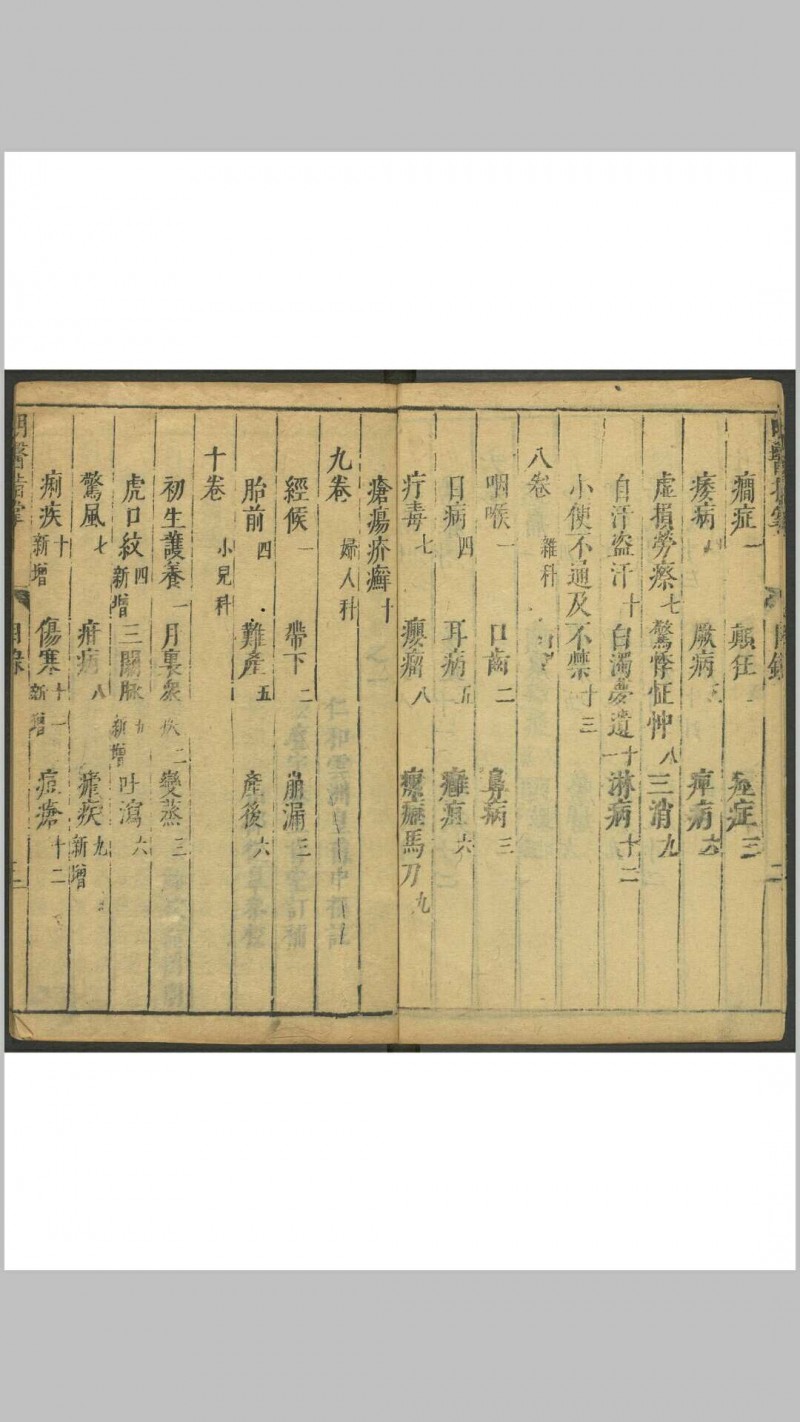 癇症一 顛狂 痓症三
痿病 厥病 痺病六
虛損勞瘵七 驚悸怔忡八 三消九
自汗盜汗十 白濁夢遺十一 淋病十二
小便不通及不禁十三
八卷 雜科
咽喉一 口齒二 鼻病三
目病四 耳病五 癰疽六
疔毒七 癭瘤八 瘰癧馬刀九
瘡瘍疥癬十
九卷 婦人科
經候一 帶下二 崩漏三
胎前四 難產五 產後六
十卷 小兒科
初生護養一 月裏衆疾二 變蒸三
虎口紋四 新增 三關脉五 新增 吐瀉六
驚風七 疳病八 瘧疾九 新增
痢疾十 新增 傷寒十一 新增 痘瘡十二